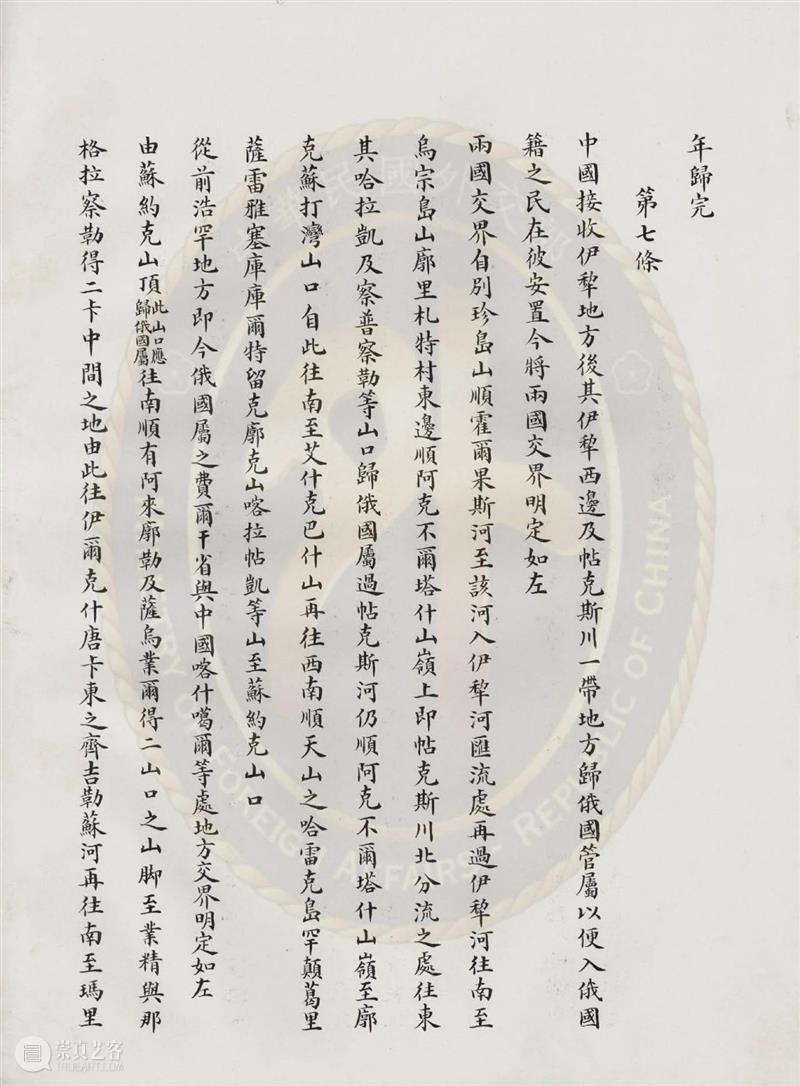 年歸完
第七條
中國接收伊犂地方後其伊犂西邊及帖克斯川一帶地方歸俄國管屬以便入俄國
籍之民在彼安置今將兩國交界明定如左
兩國交界自別珍島山順霍爾果斯河至該河入伊犂河匯流處再過伊犂河往南至
烏宗島山廓里札特村東邊順阿克不爾塔什山嶺上即帖克斯川北分流之處往東
其哈拉凱及察普察勒等山口歸俄國屬過帖克斯河仍順阿克不爾塔什山嶺至廓
克蘇打灣山口自此往南至艾什克巴什山再往西南順天山之哈雷克島罕顛葛里
薩雷雅塞庫庫爾特留克廓克山喀拉帖凱等山至蘇約克山口
從前浩罕地方即今俄國屬之費爾干省與中國喀什噶爾等處地方交界明定如左
由蘇約克山頂此山口應歸俄國屬往南順有阿來廓勒及薩烏業爾得二山口之山脚至業精與那
格拉察勒得二卡中間之地由此往伊爾克什唐卡東之齊吉勒蘇河再往南至瑪里
MINISTRY OF FOREIGN AFFAIRS - REPUBLIC OF CHINA
中華民國外交部
崇真艺客
TRUEART.COM